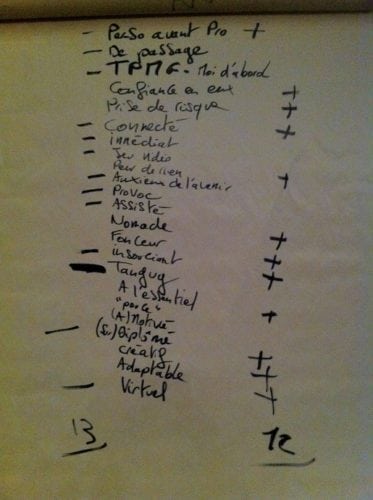 - Perso avant Pro +
- De passage
- TPMG - Moi d'abord
Confiance en eux +
Prise de risque +
- Connecté +
- immédiat
- Jeu vidéo
Peur de rien
- Anxieux de l'avenir +
- Provoc
- Assisté
Nomade
Fonceur +
- insouciant +
- Tanguy +
A l'essentiel
"
(A)Motivé +
- (Sur)Diplômé
créatif +
Adaptable +
- Virtuel +
13 12